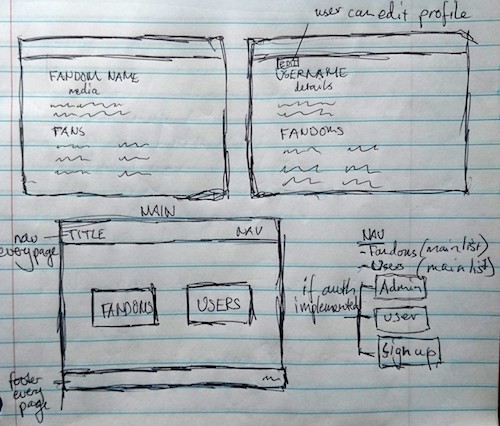 user can edit profile
FANDOM NAME
media
FANS
EDIT
USERNAME
details
FANDOMS
MAIN
nav
every page
TITLE
NAV
FANDOMS
USERS
footer
every
page
NAV
- Fandoms (main list)
- Users (main list)
if auth
implemented
Admin
user
Sign up